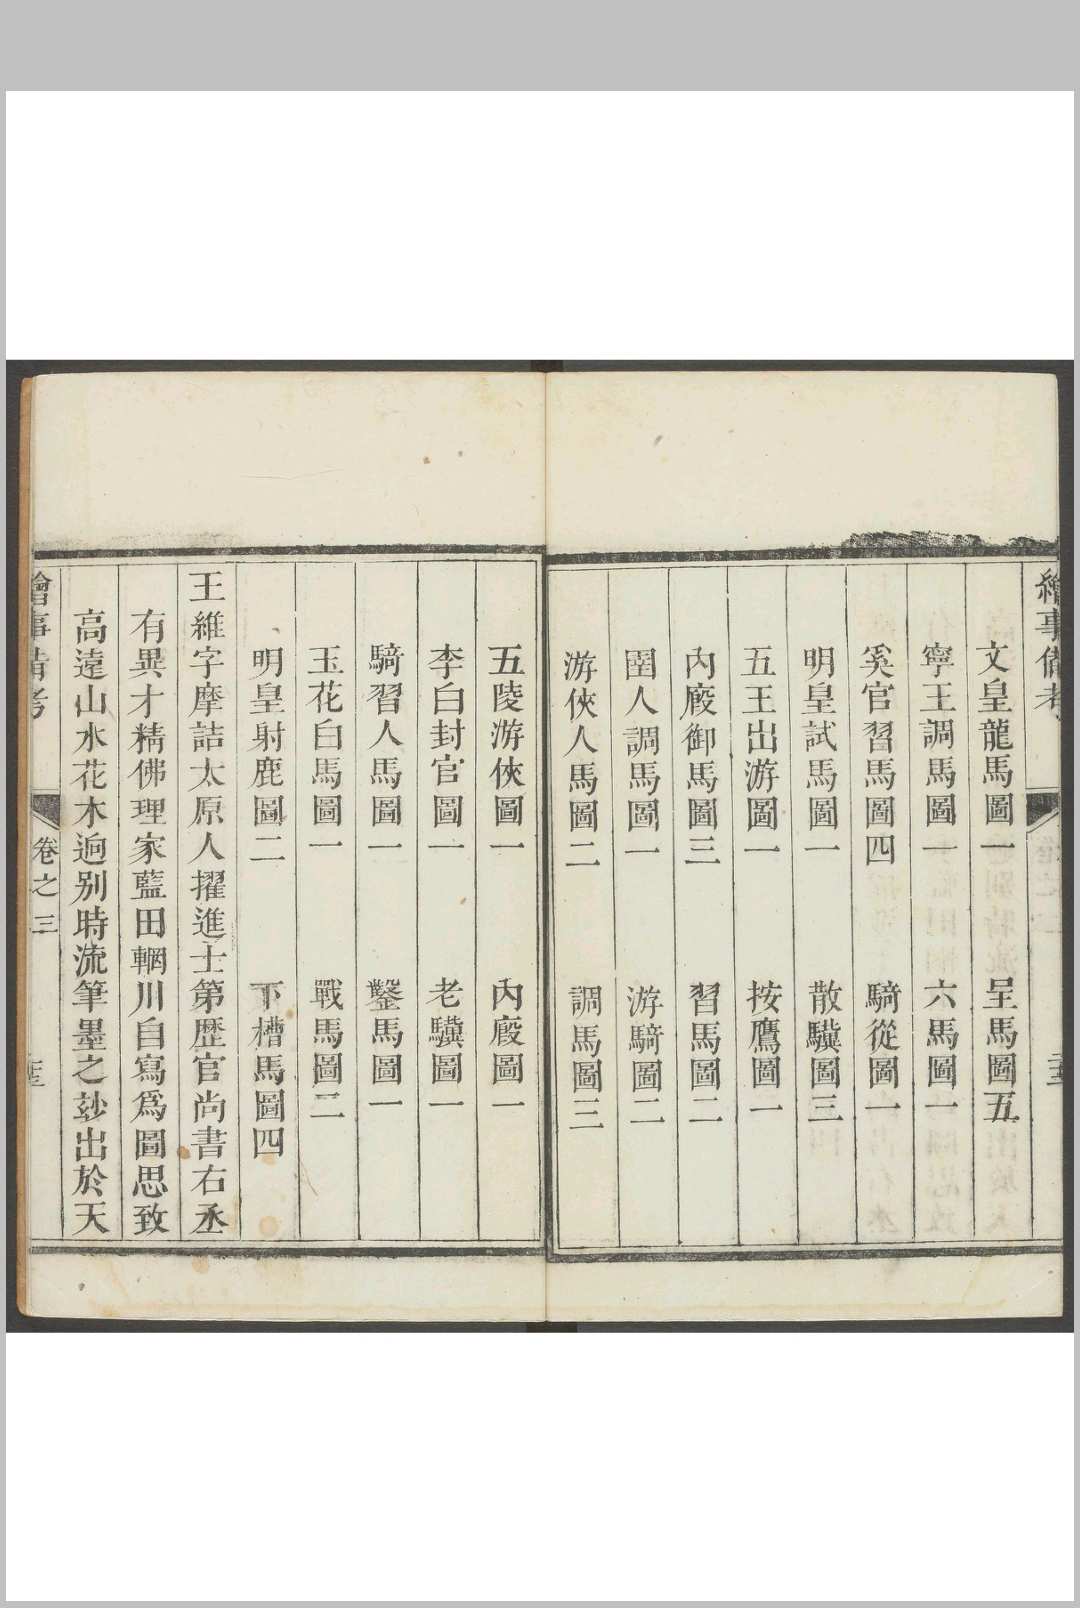 繪事備考
文皇龍馬圖一　呈馬圖五
寧王調馬圖一　六馬圖一
奚官習馬圖四　騎從圖一
明皇試馬圖一　散驥圖三
五王出游圖一　按鷹圖一
內廄御馬圖三　習馬圖二
圉人調馬圖一　游騎圖二
游俠人馬圖二　調馬圖三
五陵游俠圖一　內廄圖一
李白封官圖一　老驥圖一
騎習人馬圖一　鑿馬圖一
玉花白馬圖一　戰馬圖二
明皇射鹿圖二　下槽馬圖四
王維字摩詰太原人擢進士第歷官尚書右丞
有異才精佛理家藍田輞川自寫爲圖思致
高遠山水花木逈别時流筆墨之玅出於天
繪事備考　卷之三